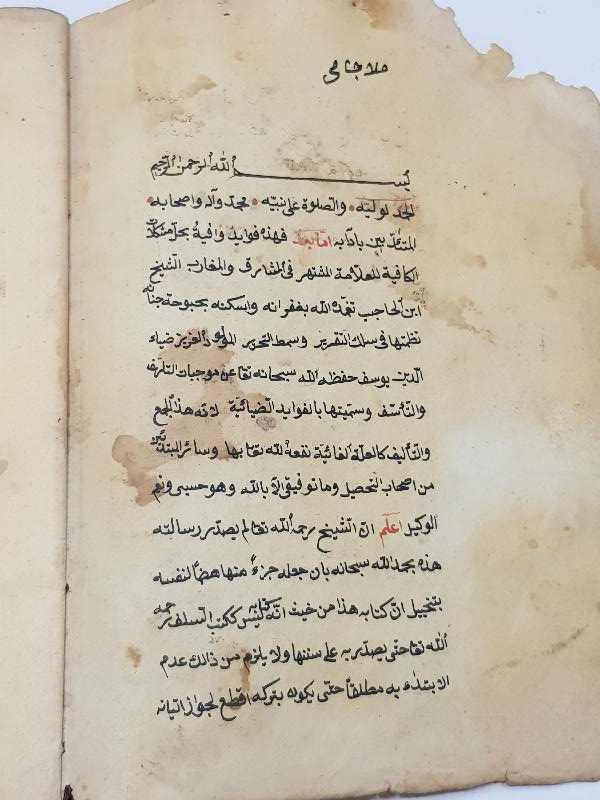 ملا جامی
بسم الله الرحمن الرحيم
الحمد لوليه والصلوة على نبيه محمد وآله واصحابه
المتئدبين بادابه اما بعد فهذه فوايد وافية بحل مشكلات
الكافية للعلامة المشتهر فى المشارق والمغارب الشيخ
ابن الحاجب تغمده الله بغفرانه واسكنه بحبوحة جنانه
نظمتها فى سلك التقرير وسمط التحرير للولد العزيز ضياء
الدين يوسف حفظه الله سبحانه تعا عن موجبات التلهف
والتأسف وسميتها بالفوايد الضيائية لانه هذا الجمع
والتأليف كالعلة الغائية نفعه الله تعا بها وسائر المبتدئين
من اصحاب التحصيل وما توفيقى الا بالله وهو حسبى ونعم
الوكيل اعلم ان الشيخ رحمه الله تعا لم يصدر رسالته
هذه بحمد الله سبحانه بان جعله جزء منها هضما لنفسه
بتخييل ان كتابه هذا من حيث انه كتابه ليس ككتب السلف رحمه
الله تعا حتى يصدر به على سننها ولا يلزم من ذالك عدم
الابتداء به مطلقا حتى يكون بتركه اقطع لجواز اتيانه